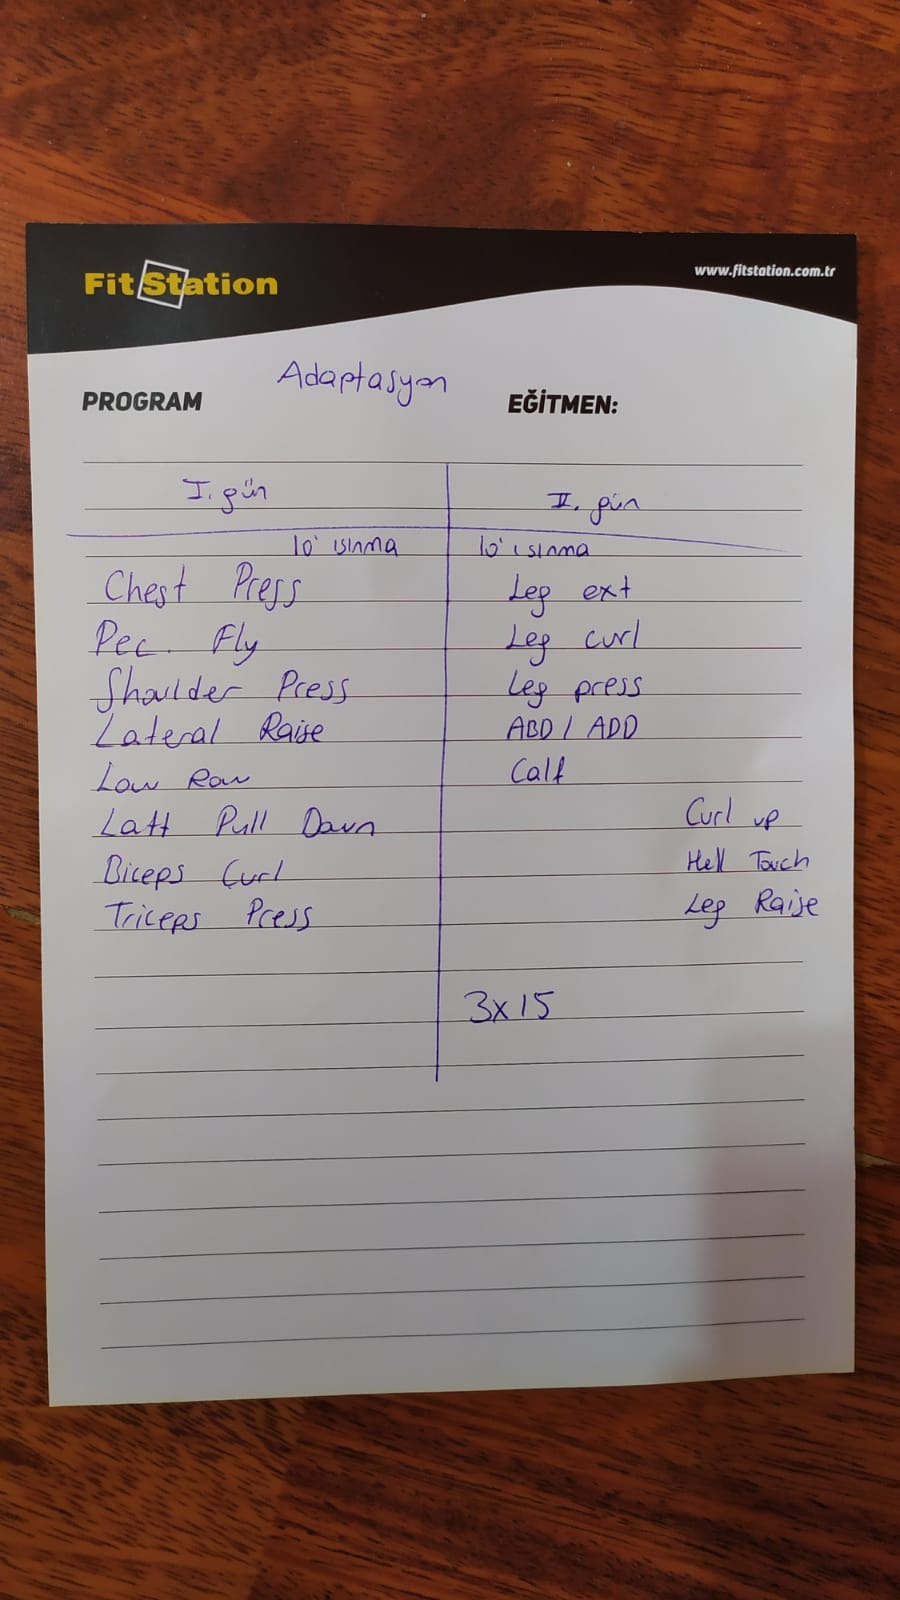 Fit Station
www.fitstation.com.tr
Adaptasyon
PROGRAM
EĞİTMEN:
I. gün
10' ısınma
Chest Press
Pec. Fly
Shoulder Press
Lateral Raise
Low Row
Latt Pull Down
Biceps Curl
Triceps Press
II. gün
10' ısınma
Leg ext
Leg curl
Leg press
ABD / ADD
Calf
Curl up
Hell Touch
Leg Raise
3x15